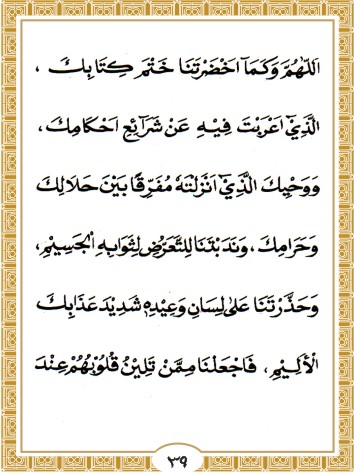 اَللّٰهُمَّ وَكَمَآ اَحْضَرْتَنَا خَتْمَ كِتَابِكَ ،
الَّذِيٓ اَعْرَبْتَ فِيْهِ عَنْ شَرَآئِعِ اَحْكَامِكَ ،
وَوَحْيِكَ الَّذِيٓ اَنْزَلْتَهٗ مُفَرِّقًا بَيْنَ حَلَالِكَ
وَحَرَامِكَ ، وَنَدَبْتَنَا لِلتَّعَرُّضِ لِثَوَابِهِ الْجَسِيْمِ ،
وَحَذَّرْتَنَا عَلٰى لِسَانِ وَعِيْدِهٖ شَدِيْدَ عَذَابِكَ
الْاَلِيْمِ ، فَاجْعَلْنَا مِمَّنْ تَلِيْنُ قُلُوْبُهُمْ عِنْدَ
٣٩